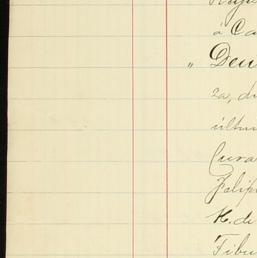 á Ca
„ Deu
za, d
últim
Cura
Felip
H. de
Tibu